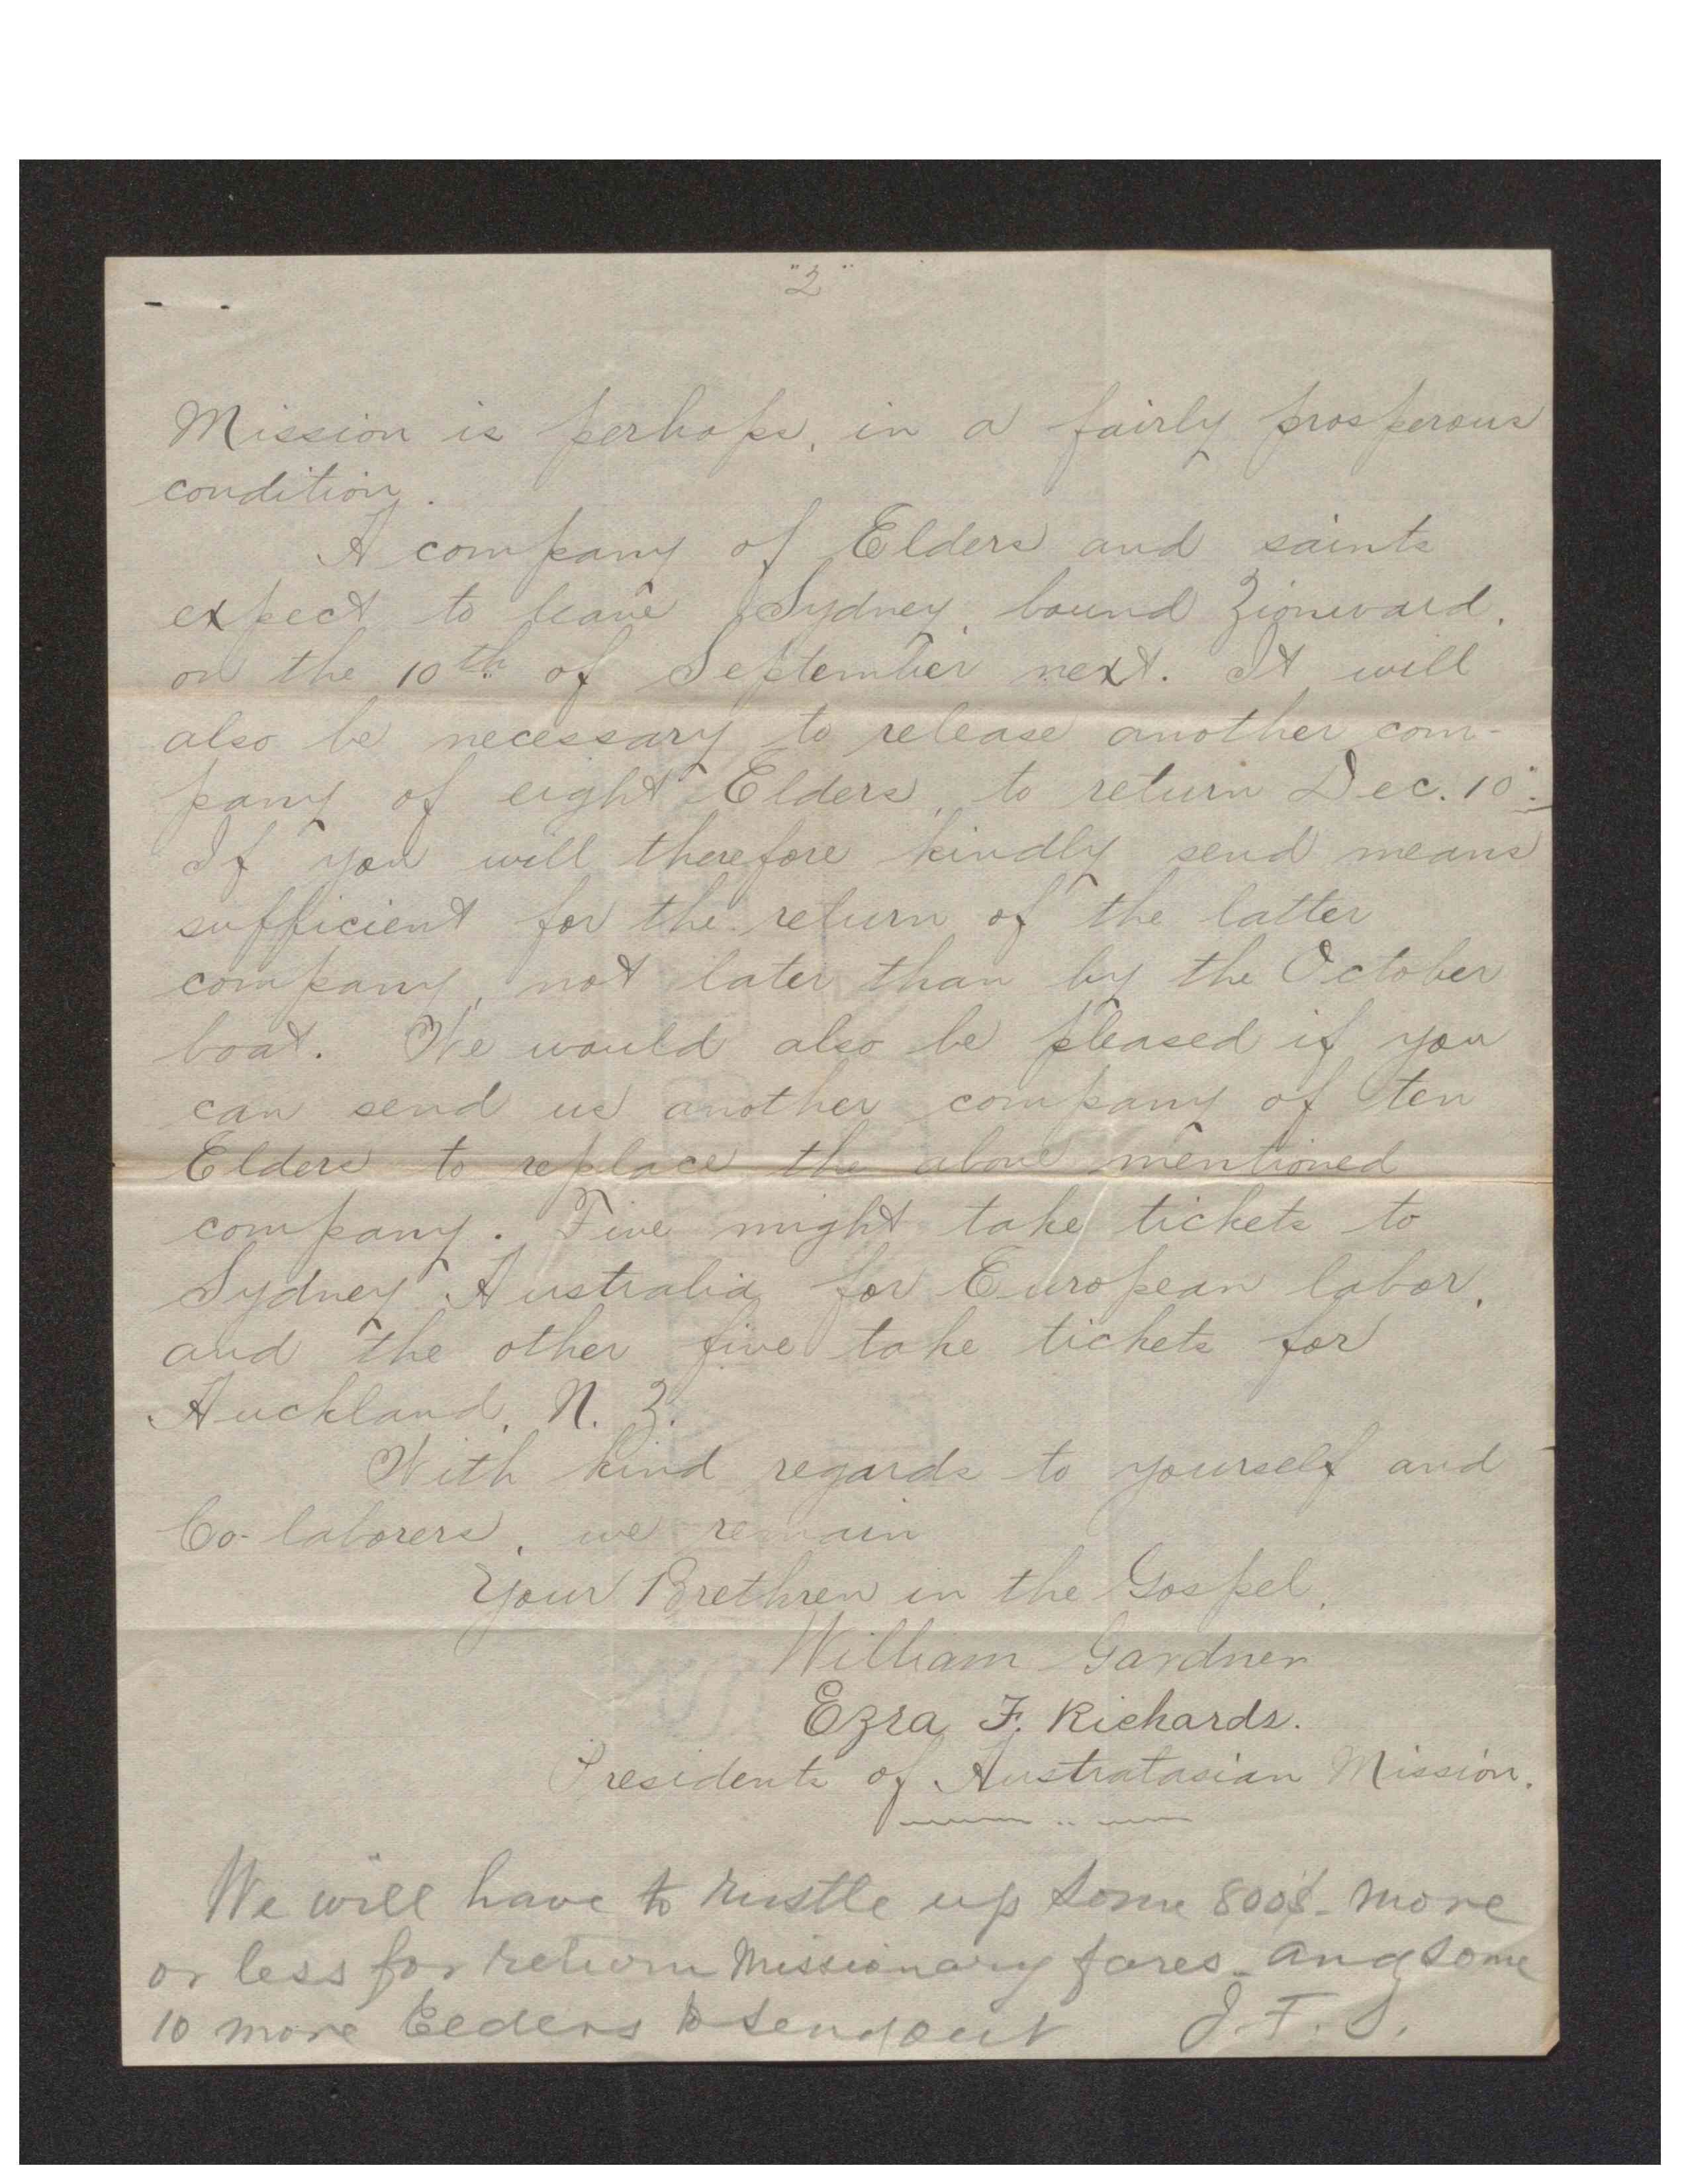 "2"
Mission is perhaps, in a fairly prosperous
condition.
A company of Elders and saints
expect to leave Sydney, bound Zionward,
on the 10th of September next. It will
also be necessary to release another com-
pany of eight Elders, to return Dec. 10".
If you will therefore kindly send means
sufficient for the return of the latter
company, not later than by the October
boat. We would also be pleased if you
can send us another company of ten
Elders to replace the above mentioned
company. Five might take tickets to
Sydney Australia for European labor,
and the other five take tickets for
Auckland, N. Z.
With kind regards to yourself and
Co-laborers, we remain
Your Brethren in the Gospel,
William Gardner
Ezra F. Richards.
Presidents of Australasian Mission.
We will have to rustle up some 800$ - more
or less for return Missionary fares - and some
10 more Elders to send out J. F. S.